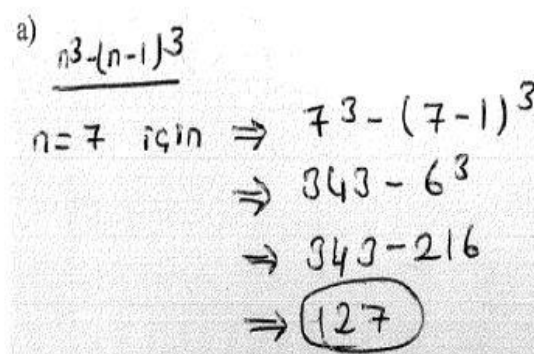 a) n³-(n-1)³
n=7 için ⇒ 7³-(7-1)³
⇒ 343-6³
⇒ 343-216
⇒ 127